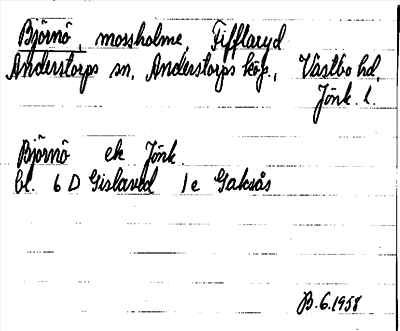 Björnö, mossholme, Fifflaryd
Anderstorps sn, Anderstorps köp., Västbo hd,
Jönk. l.
Björnö ek Jönk.
bl. 6 D Gislaved 1e Gaksås
B.6.1958